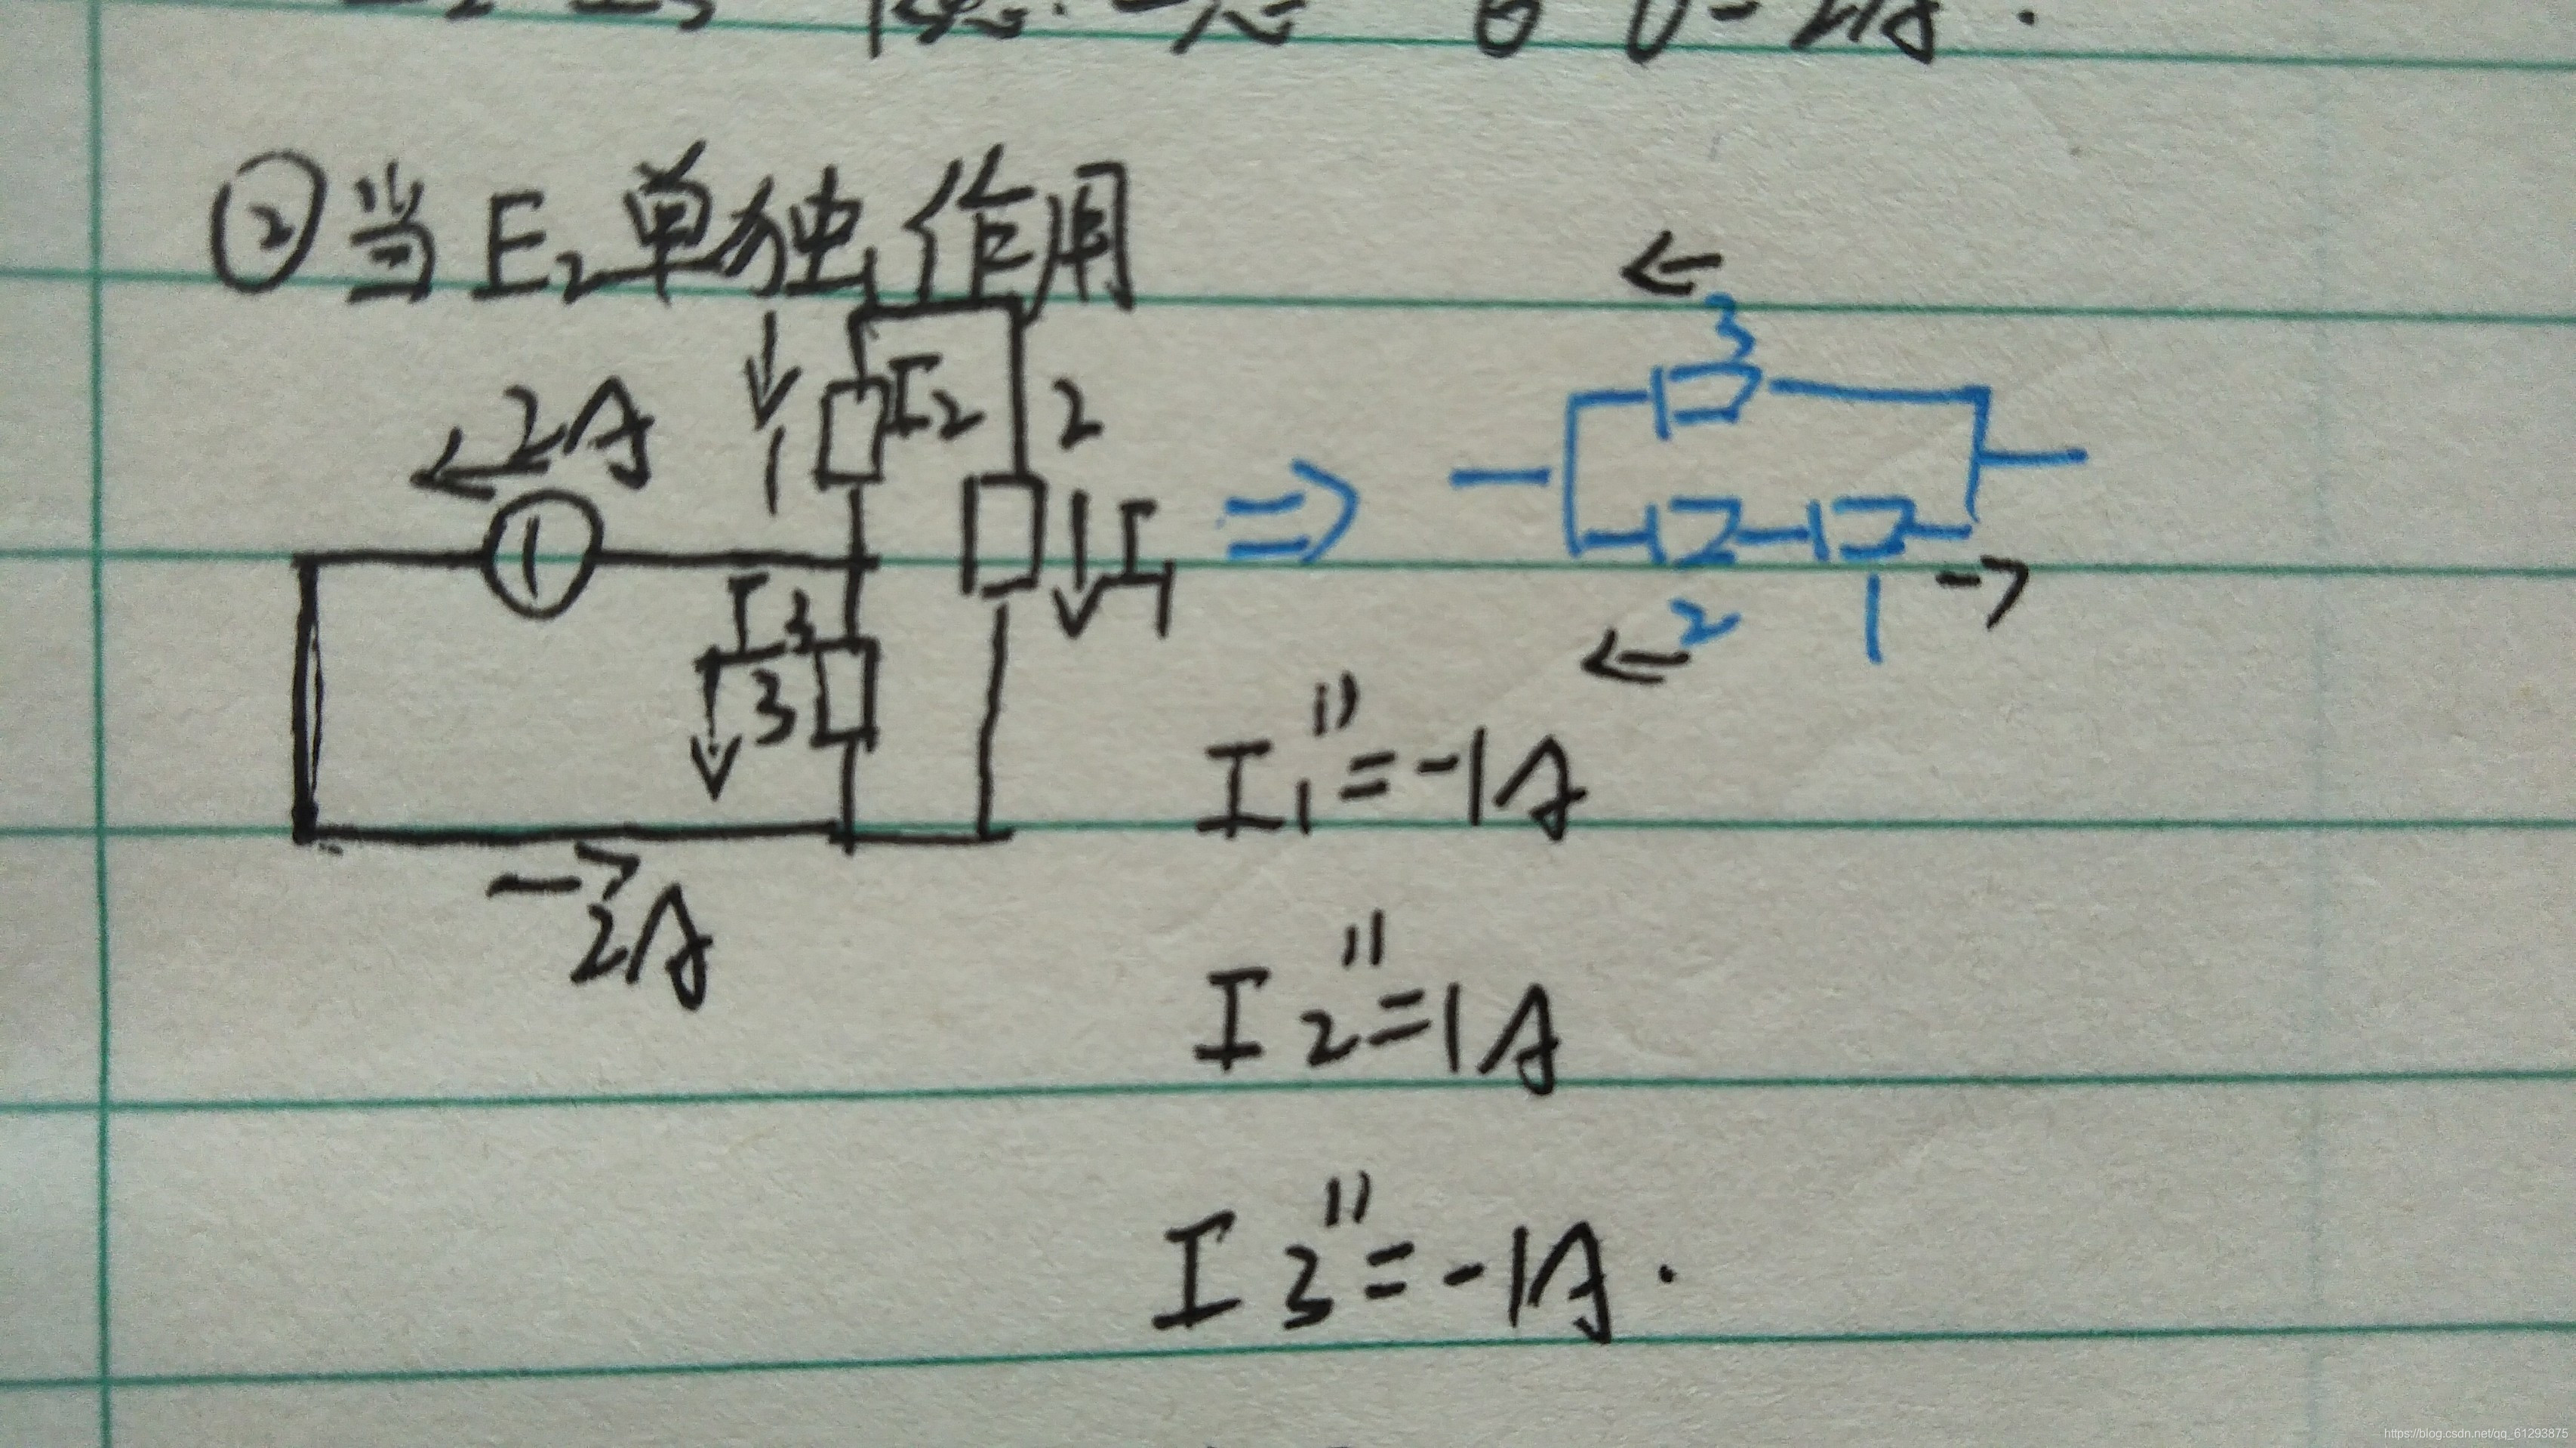 ②当E₂单独作用
2A
1
I2
2
I1
I3
3
2A
3
2
1
I₁''=-1A
I₂''=1A
I₃''=-1A.
https://blog.csdn.net/qq_61293875